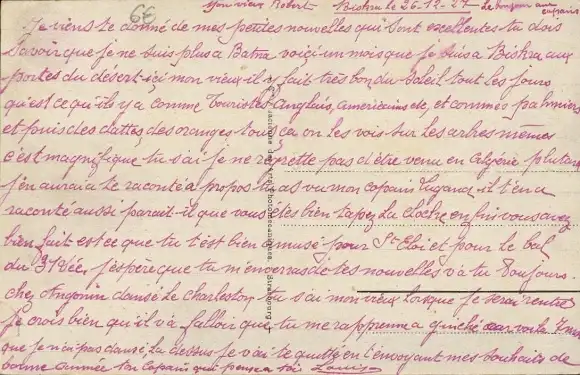 6€
Mon vieux Robert Biskra le 26-12-27 Le bonjour aux copains
Je viens te donné de mes petites nouvelles qui sont excellentes tu dois
savoir que je ne suis plus a Batna voiçi un mois que je suis a Biskra aux
portes du désert içi mon vieux il y fait très bon du soleil tout les jours
qu'est ce qu'ils y a comme Touristes Anglais, américains etc, et commes palmiers
et puis des dattes des oranges tous ça on les vois sur les arbres mêmes
c'est magnifique tu s'ai je ne regrette pas d'être venu en Algérie plutard
j'en aurai a te raconté a propos tu as vu mon copain il t'en a
raconté aussi parait-il que vous êtes bien tapez la cloche enfin vous avez
bien fait est ce que tu t'est bien amusé pour St Eloi et pour le bal
du 3 j'espère que tu m'enverras de tes nouvelles vâ tu toujours
chez dansé le Charleston tu s'ai mon vieux lorsque je serai rentré
je crois bien qu'il vâ falloir que tu me rapprenne a car voila 7 mois
que je n'ai pas dansé la dessus je vais te quitté en t'envoyant mes souhaits de
bonne année ton Copain qui pense a toi Louis